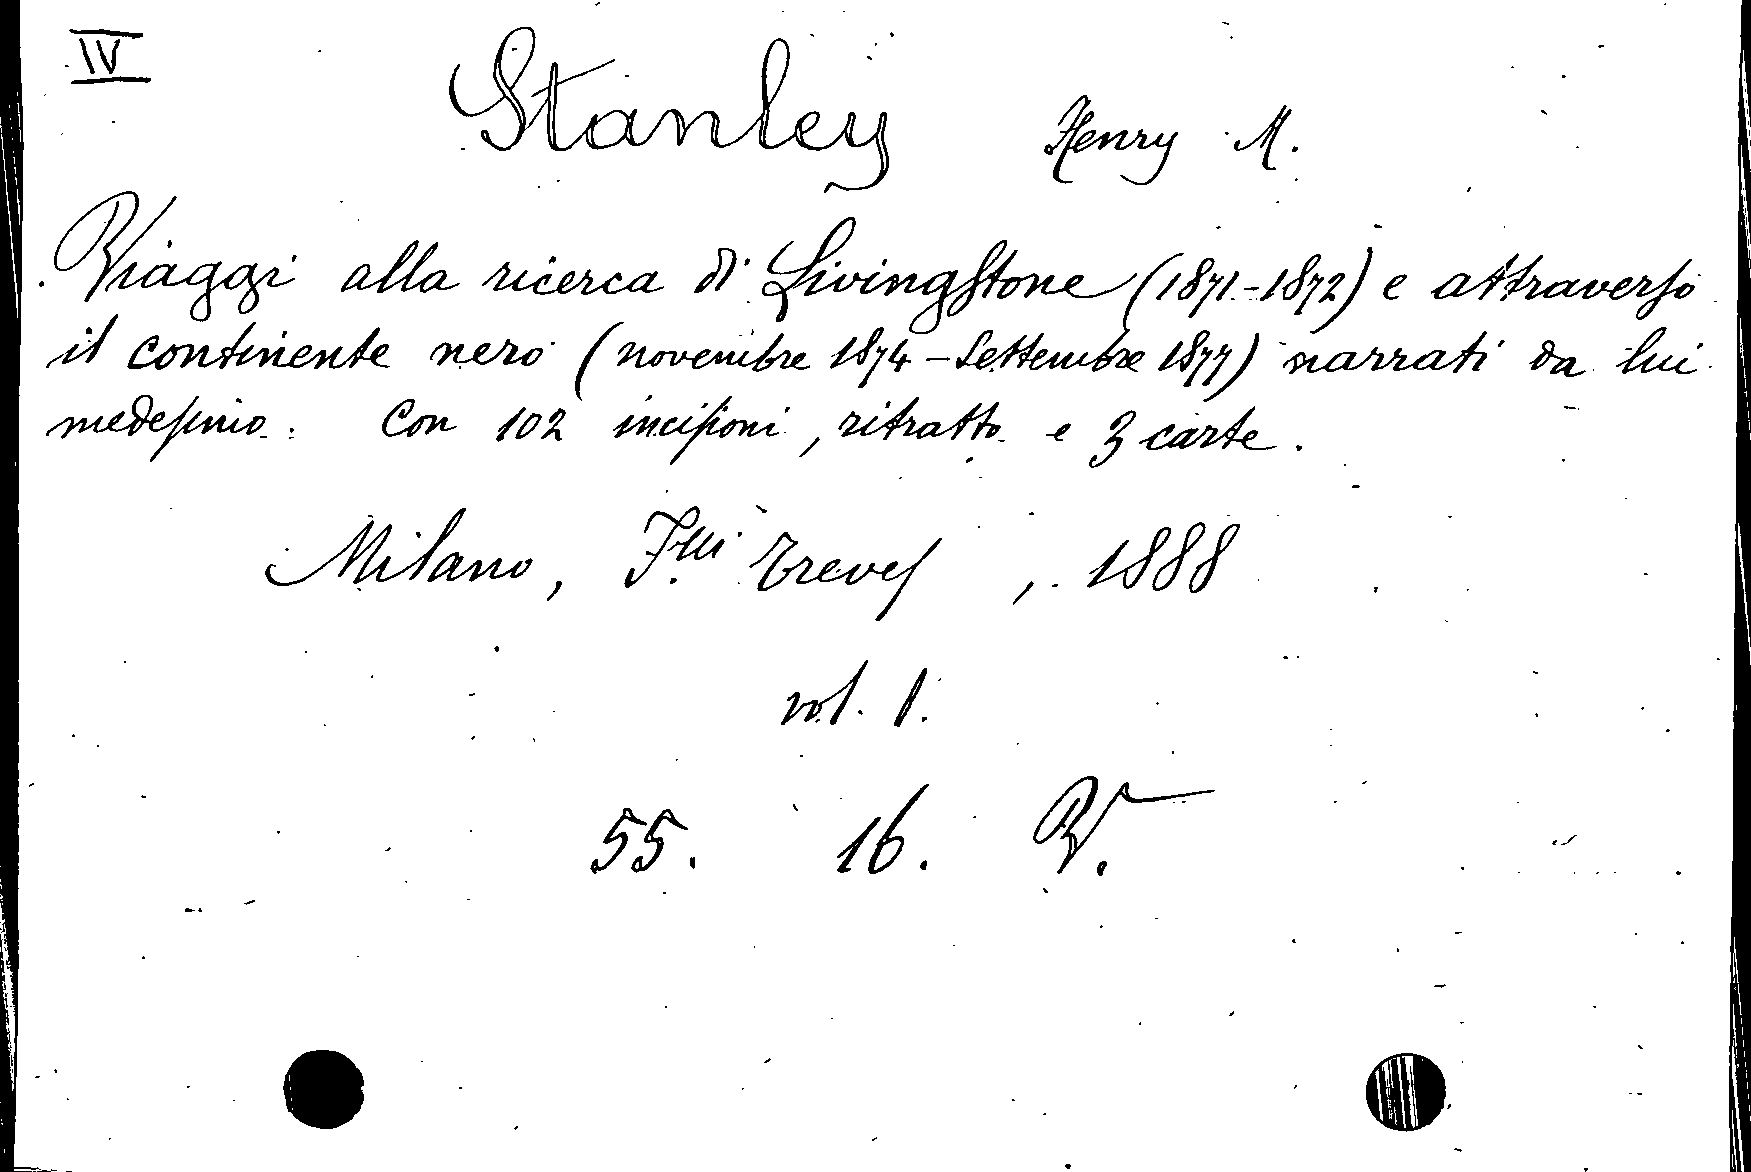 IV
Stanley Henry M.
Viaggi alla ricerca di Livingstone (1871-1872) e attraverso
il continente nero (novembre 1874 - Settembre 1877) narrati da lui
medesimo. Con 102 incisioni, ritratto e 3 carte.
Milano, F.lli Treves, 1888
vol. 1.
55. 16. V.